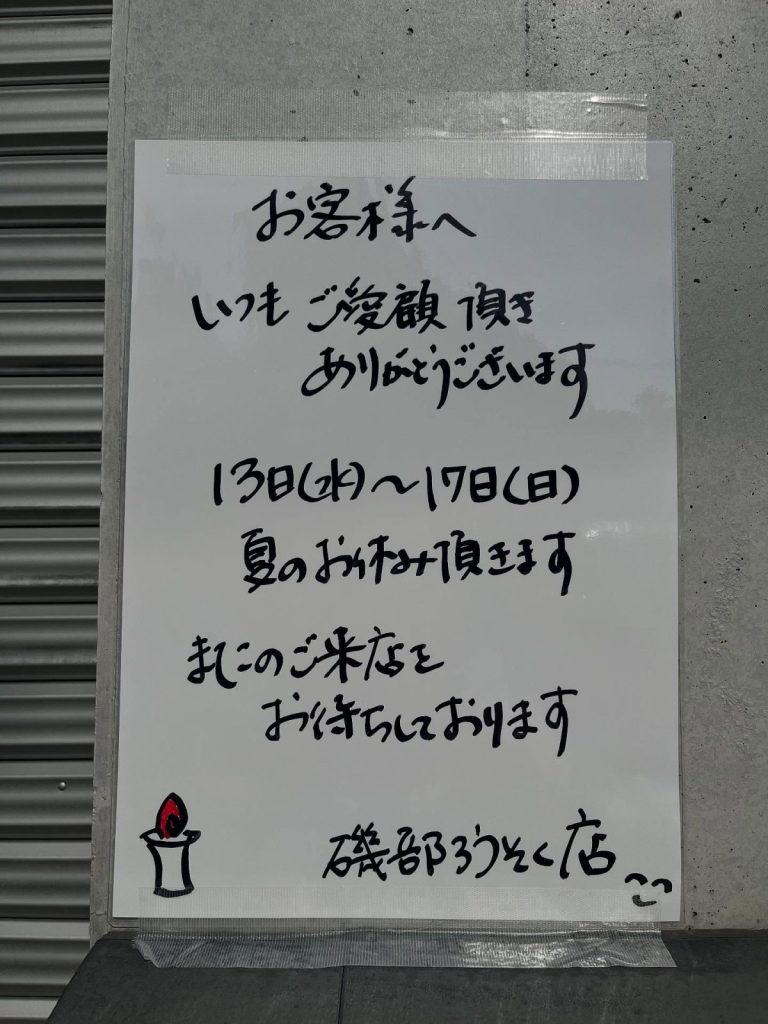 お客様へ
いつもご愛顧頂き
ありがとうございます
13日(水)～17日(日)
夏のお休み頂きます
またのご来店を
お待ちしております
磯部ろうそく店